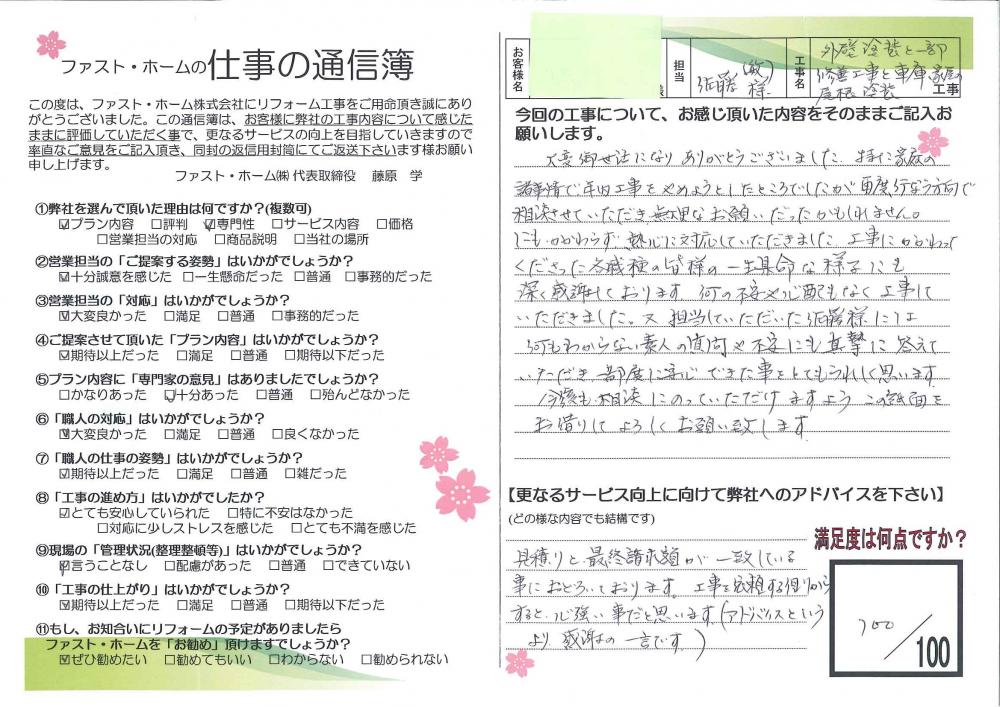 ファスト・ホームの仕事の通信簿
この度は、ファスト・ホーム株式会社にリフォーム工事をご用命頂き誠にあり
がとうございました。この通信簿は、お客様に弊社の工事内容について感じた
ままに評価していただく事で、更なるサービスの向上を目指していきますので
率直なご意見をご記入頂き、同封の返信用封筒にてご返送下さいます様お願い
申し上げます。
ファスト・ホーム㈱ 代表取締役 藤原 学
①弊社を選んで頂いた理由は何ですか?(複数可)
☑プラン内容 □評判 ☑専門性 □サービス内容 □価格
□営業担当の対応 □商品説明 □当社の場所
②営業担当の「ご提案する姿勢」はいかがでしょうか?
☑十分誠意を感じた □一生懸命だった □普通 □事務的だった
③営業担当の「対応」はいかがでしょうか?
☑大変良かった □満足 □普通 □事務的だった
④ご提案させて頂いた「プラン内容」はいかがでしょうか?
☑期待以上だった □満足 □普通 □期待以下だった
⑤プラン内容に「専門家の意見」はありましたでしょうか?
□かなりあった ☑十分あった □普通 □殆んどなかった
⑥「職人の対応」はいかがでしょうか?
☑大変良かった □満足 □普通 □良くなかった
⑦「職人の仕事の姿勢」はいかがでしょうか?
☑期待以上だった □満足 □普通 □雑だった
⑧「工事の進め方」はいかがでしたか?
☑とても安心していられた □特に不安はなかった
□対応に少しストレスを感じた □とても不満を感じた
⑨現場の「管理状況(整理整頓等)」はいかがでしょうか?
☑言うことなし □配慮があった □普通 □できていない
⑩「工事の仕上がり」はいかがでしょうか?
☑期待以上だった □満足 □普通 □期待以下だった
⑪もし、お知合いにリフォームの予定がありましたら
ファスト・ホームを「お勧め」頂けますでしょうか?
☑ぜひ勧めたい □勧めてもいい □わからない □勧められない
お客様名 様 担当 佐藤(敏)様 工事名 外壁塗装と一部
修善工事と車庫、家屋の
屋根塗装 工事
今回の工事について、お感じ頂いた内容をそのままご記入お
願いします。
大変御世話になりありがとうございました。特に家庭の
諸事情で年内工事をやめようとしたところでしたが再度行なう方向で
相談させていただき無理なお願いだったかもしれません。
にもかかわらず、熱心に対応していただきました。工事にかかわって
くださった各職種の皆様の一生県命な様子にも
深く感謝しております。何の不安や心配もなく工事して
いただきました。又担当していただいた佐藤様には
何もわからない素人の質問や不安にも真摯に答えて
いただき、都度に安心できた事をとてもうれしく思います
今後も相談にのっていただけますようこの紙面を
お借りしてよろしくお願い致します
【更なるサービス向上に向けて弊社へのアドバイスを下さい】
(どの様な内容でも結構です)
満足度は何点ですか?
見積りと最終請求額が一致している
事におどろいております。工事を依頼する側から
すると、心強い事だと思います(アドバイスという
より感謝の一言です)
100／100